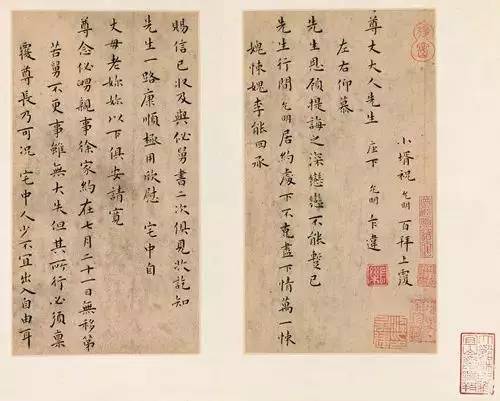 小壻祝允明百拜上覆
尊丈大人先生 座下 允明乍違
左右仰慕
先生恩顧提誨之深戀戀不能暫已
先生行間允明居約處下不克盡下情萬一悚
媿悚媿李能回承
賜信已收及與秘舅書二次俱見收訖知
先生一路康順極用欣慰 宅中自
丈母老妳妳以下俱安請寬
尊念秘甥親事徐家約在七月二十一日無移第
苦舅不更事雖無大失但其所行必須稟
覆尊長乃可況 宅中人少不宜出入自由耳